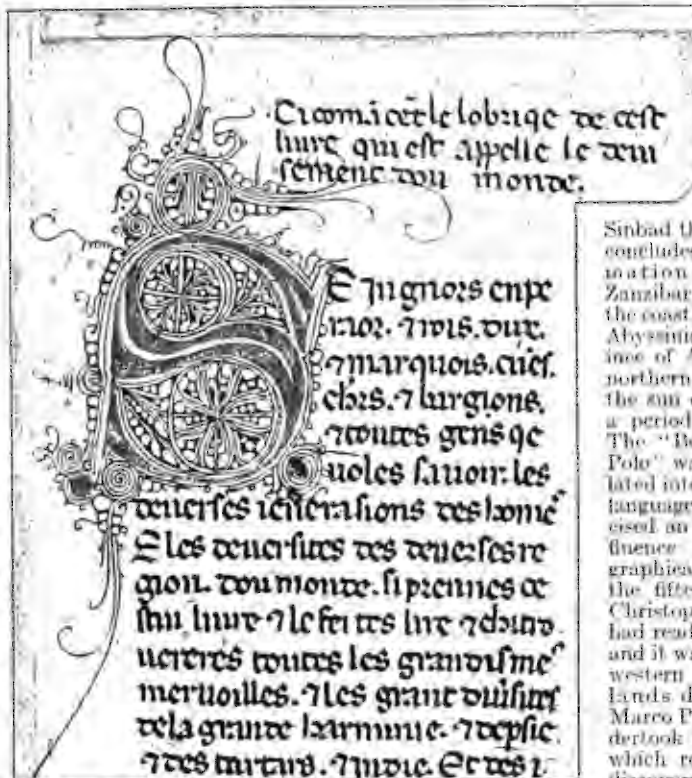 Ci comāce le lobrique de cest
liure qui est appelle le deui
sement dou monde.
Seingnors enpe
raor. ⁊ rois. dux.
⁊ marquois. cues.
chrs. ⁊ burgions.
⁊ toutes gens qe
uoles sauoir. les
deuerses ienerasions des home
E les deuersites des deuerses re
gion. dou monde. si prennes ce
stui liure ⁊ le feites lire ⁊
uereres toutes les grandisme
meruoilles. ⁊ les grant diuersites
de la grande harminie. ⁊ de psie.
⁊ des tartars. ⁊ indie. Et des
Sinbad th
concludes
mation
Zanzibar
the coast
Abyssini
ince of A
northern
the sun
a period
The "Bo
Polo" wa
lated into
language
cised an
fluence
graphical
the fifte
Christop
had read
and it wa
western
lands d
Marco P
dertook
which r